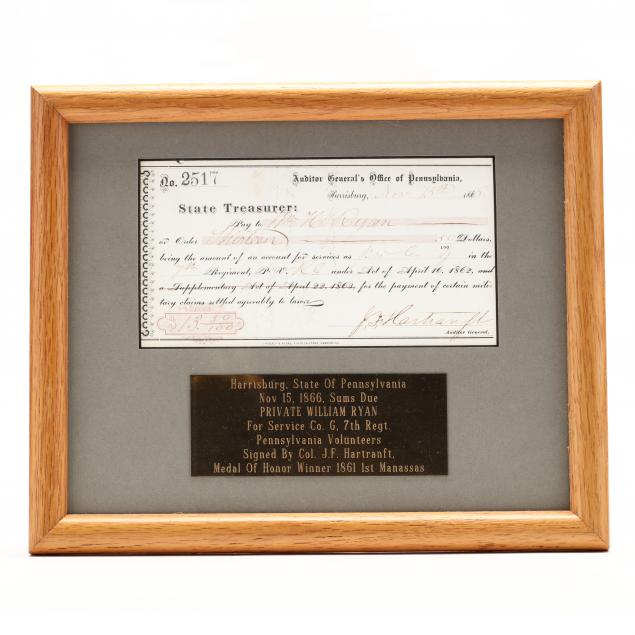 No. 2517
Auditor General's Office of Pennsylvania,
Harrisburg, Nov 15th 186
State Treasurer:
Pay to Wm H Ryan
or Order Thirteen 50/100 Dollars,
being the amount of an account for services as Co G in the
7th Regiment, P. V. under Act of April 16, 1862, and
a Supplementary Act of April 22, 1863, for the payment of certain mili-
tary claims settled agreeably to law.
$13 50/100
J F Hartranft
Auditor General.
Harrisburg, State Of Pennsylvania
Nov 15, 1866, Sums Due
PRIVATE WILLIAM RYAN
For Service Co. G, 7th Regt.
Pennsylvania Volunteers
Signed By Col. J.F. Hartranft,
Medal Of Honor Winner 1861 1st Manassas